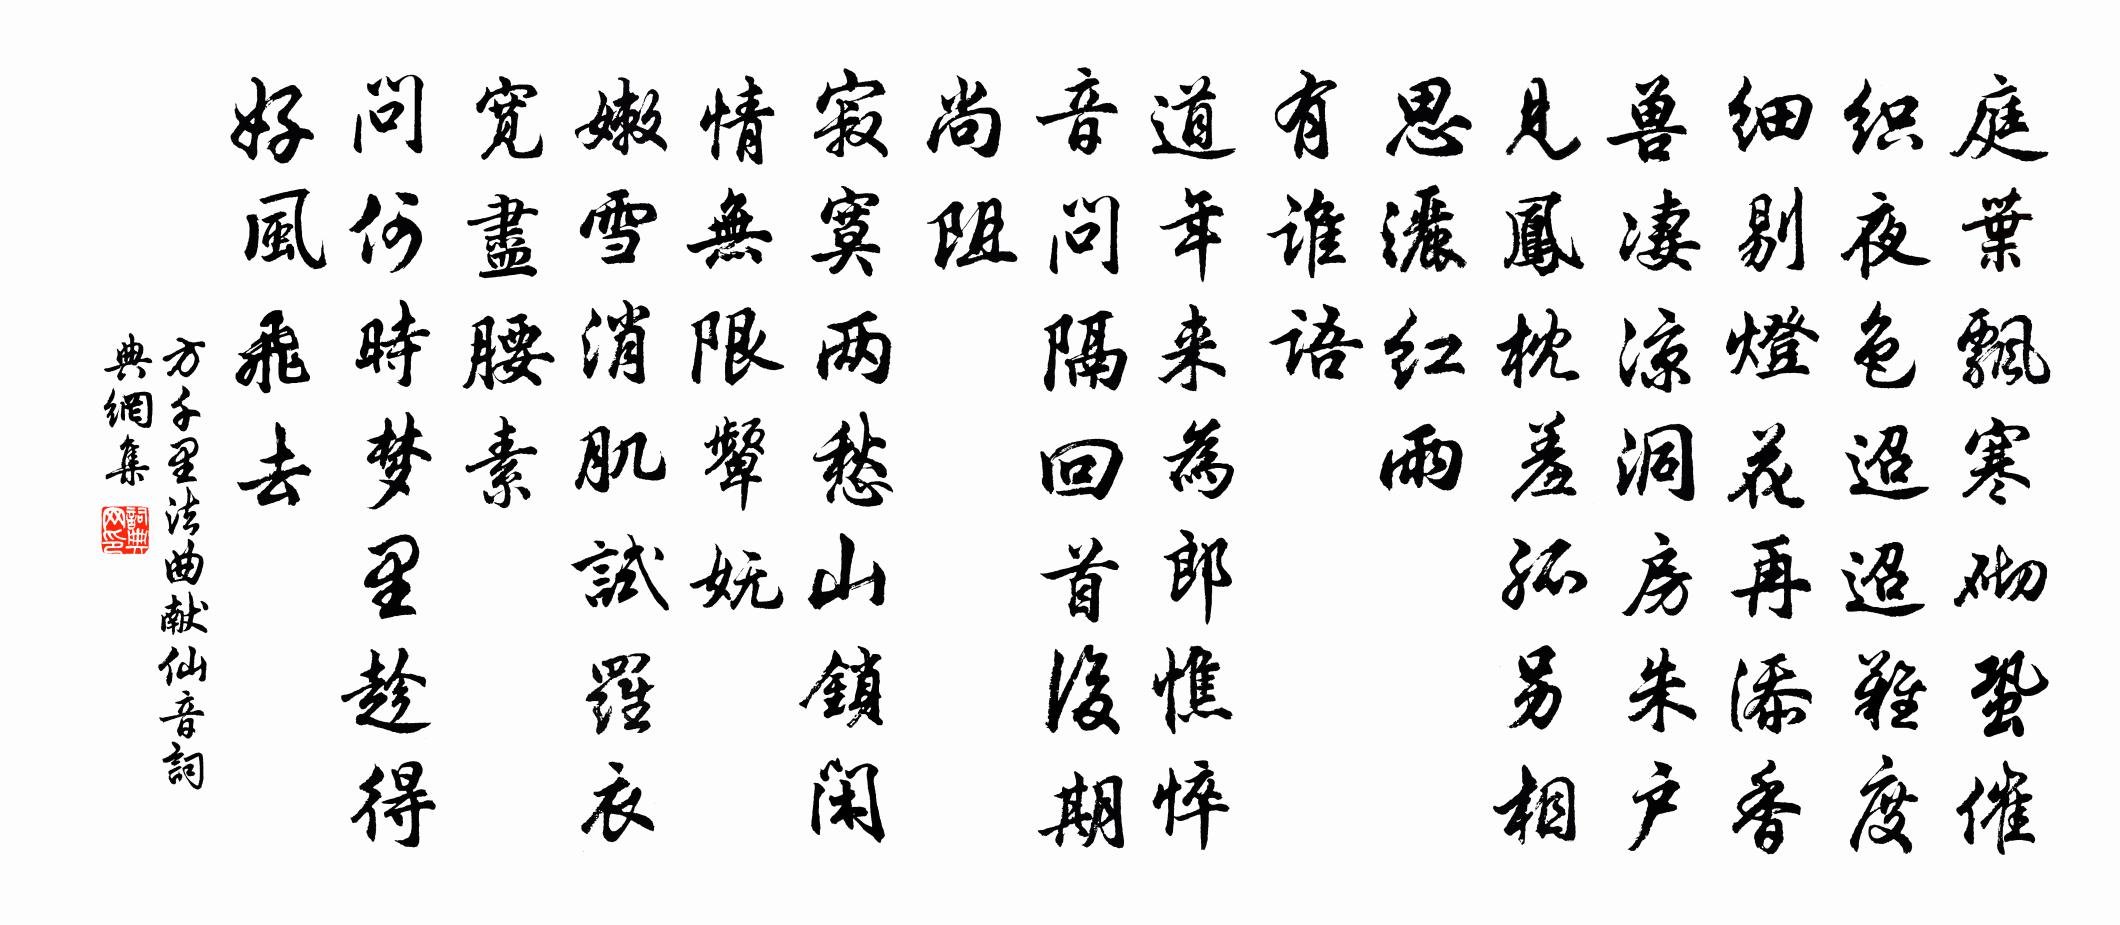 庭葉飄寒砌蛩催
织夜色迢迢難度
细剔燈花再添香
兽凄凉洞房朱户
見鳳枕羞孤另相
思灑红雨
有谁语
道年来為郎憔悴
音问隔回首後期
尚阻
寂寞两愁山鎖闲
情無限顰妩
嫩雪消肌試羅衣
寬盡腰素
问何時梦里趁得
好風飛去
方千里法曲献仙音詞
典網集
詞典网印